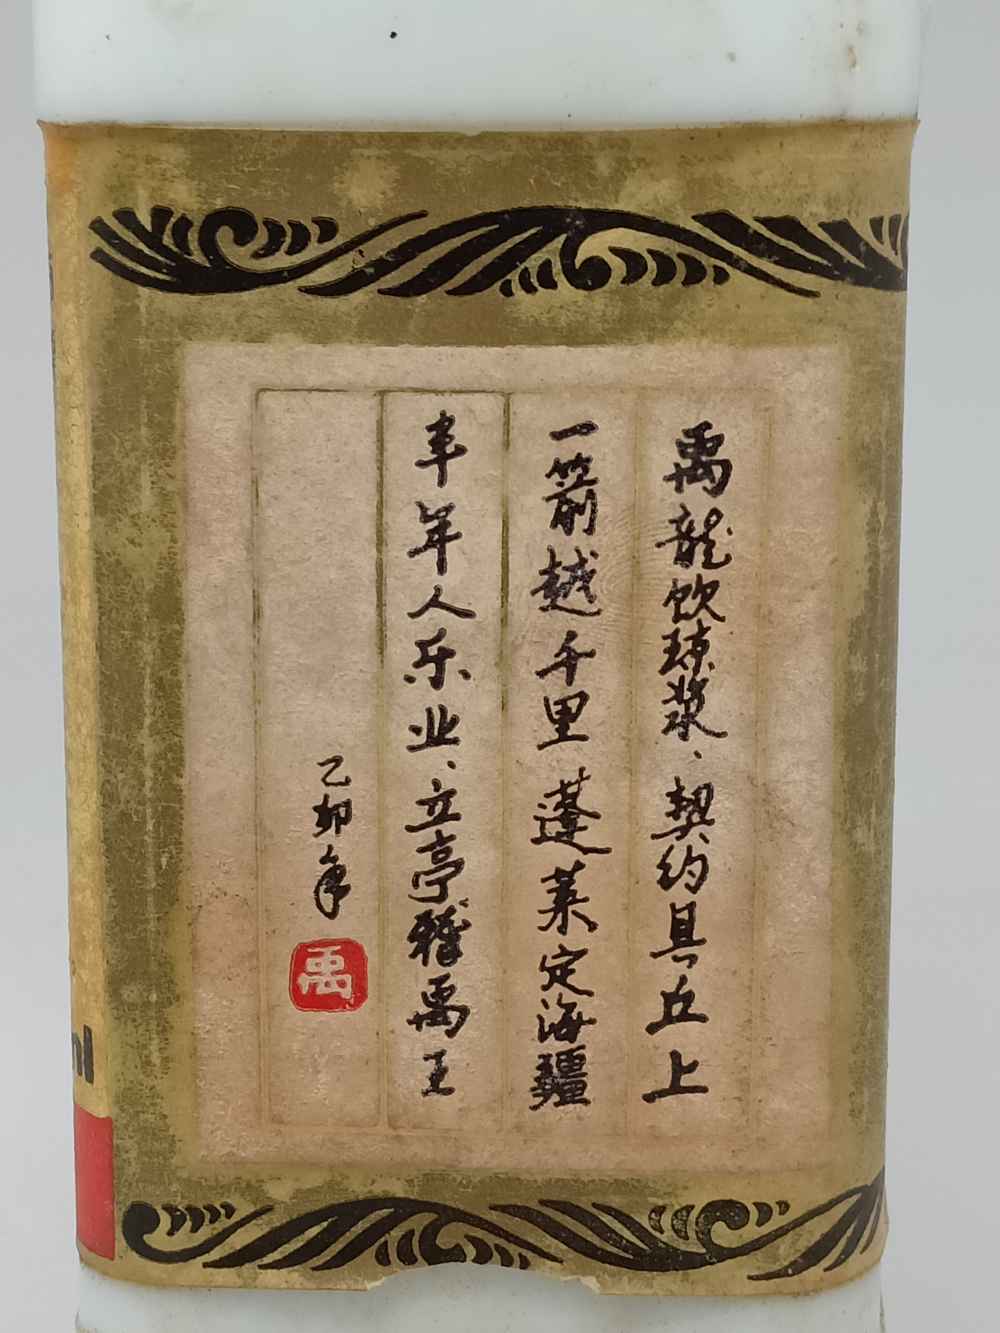 禹龍饮琼浆、契约具丘上
一箭越千里蓬莱定海疆
丰年人乐业、立亭禹王
乙卯年
禹